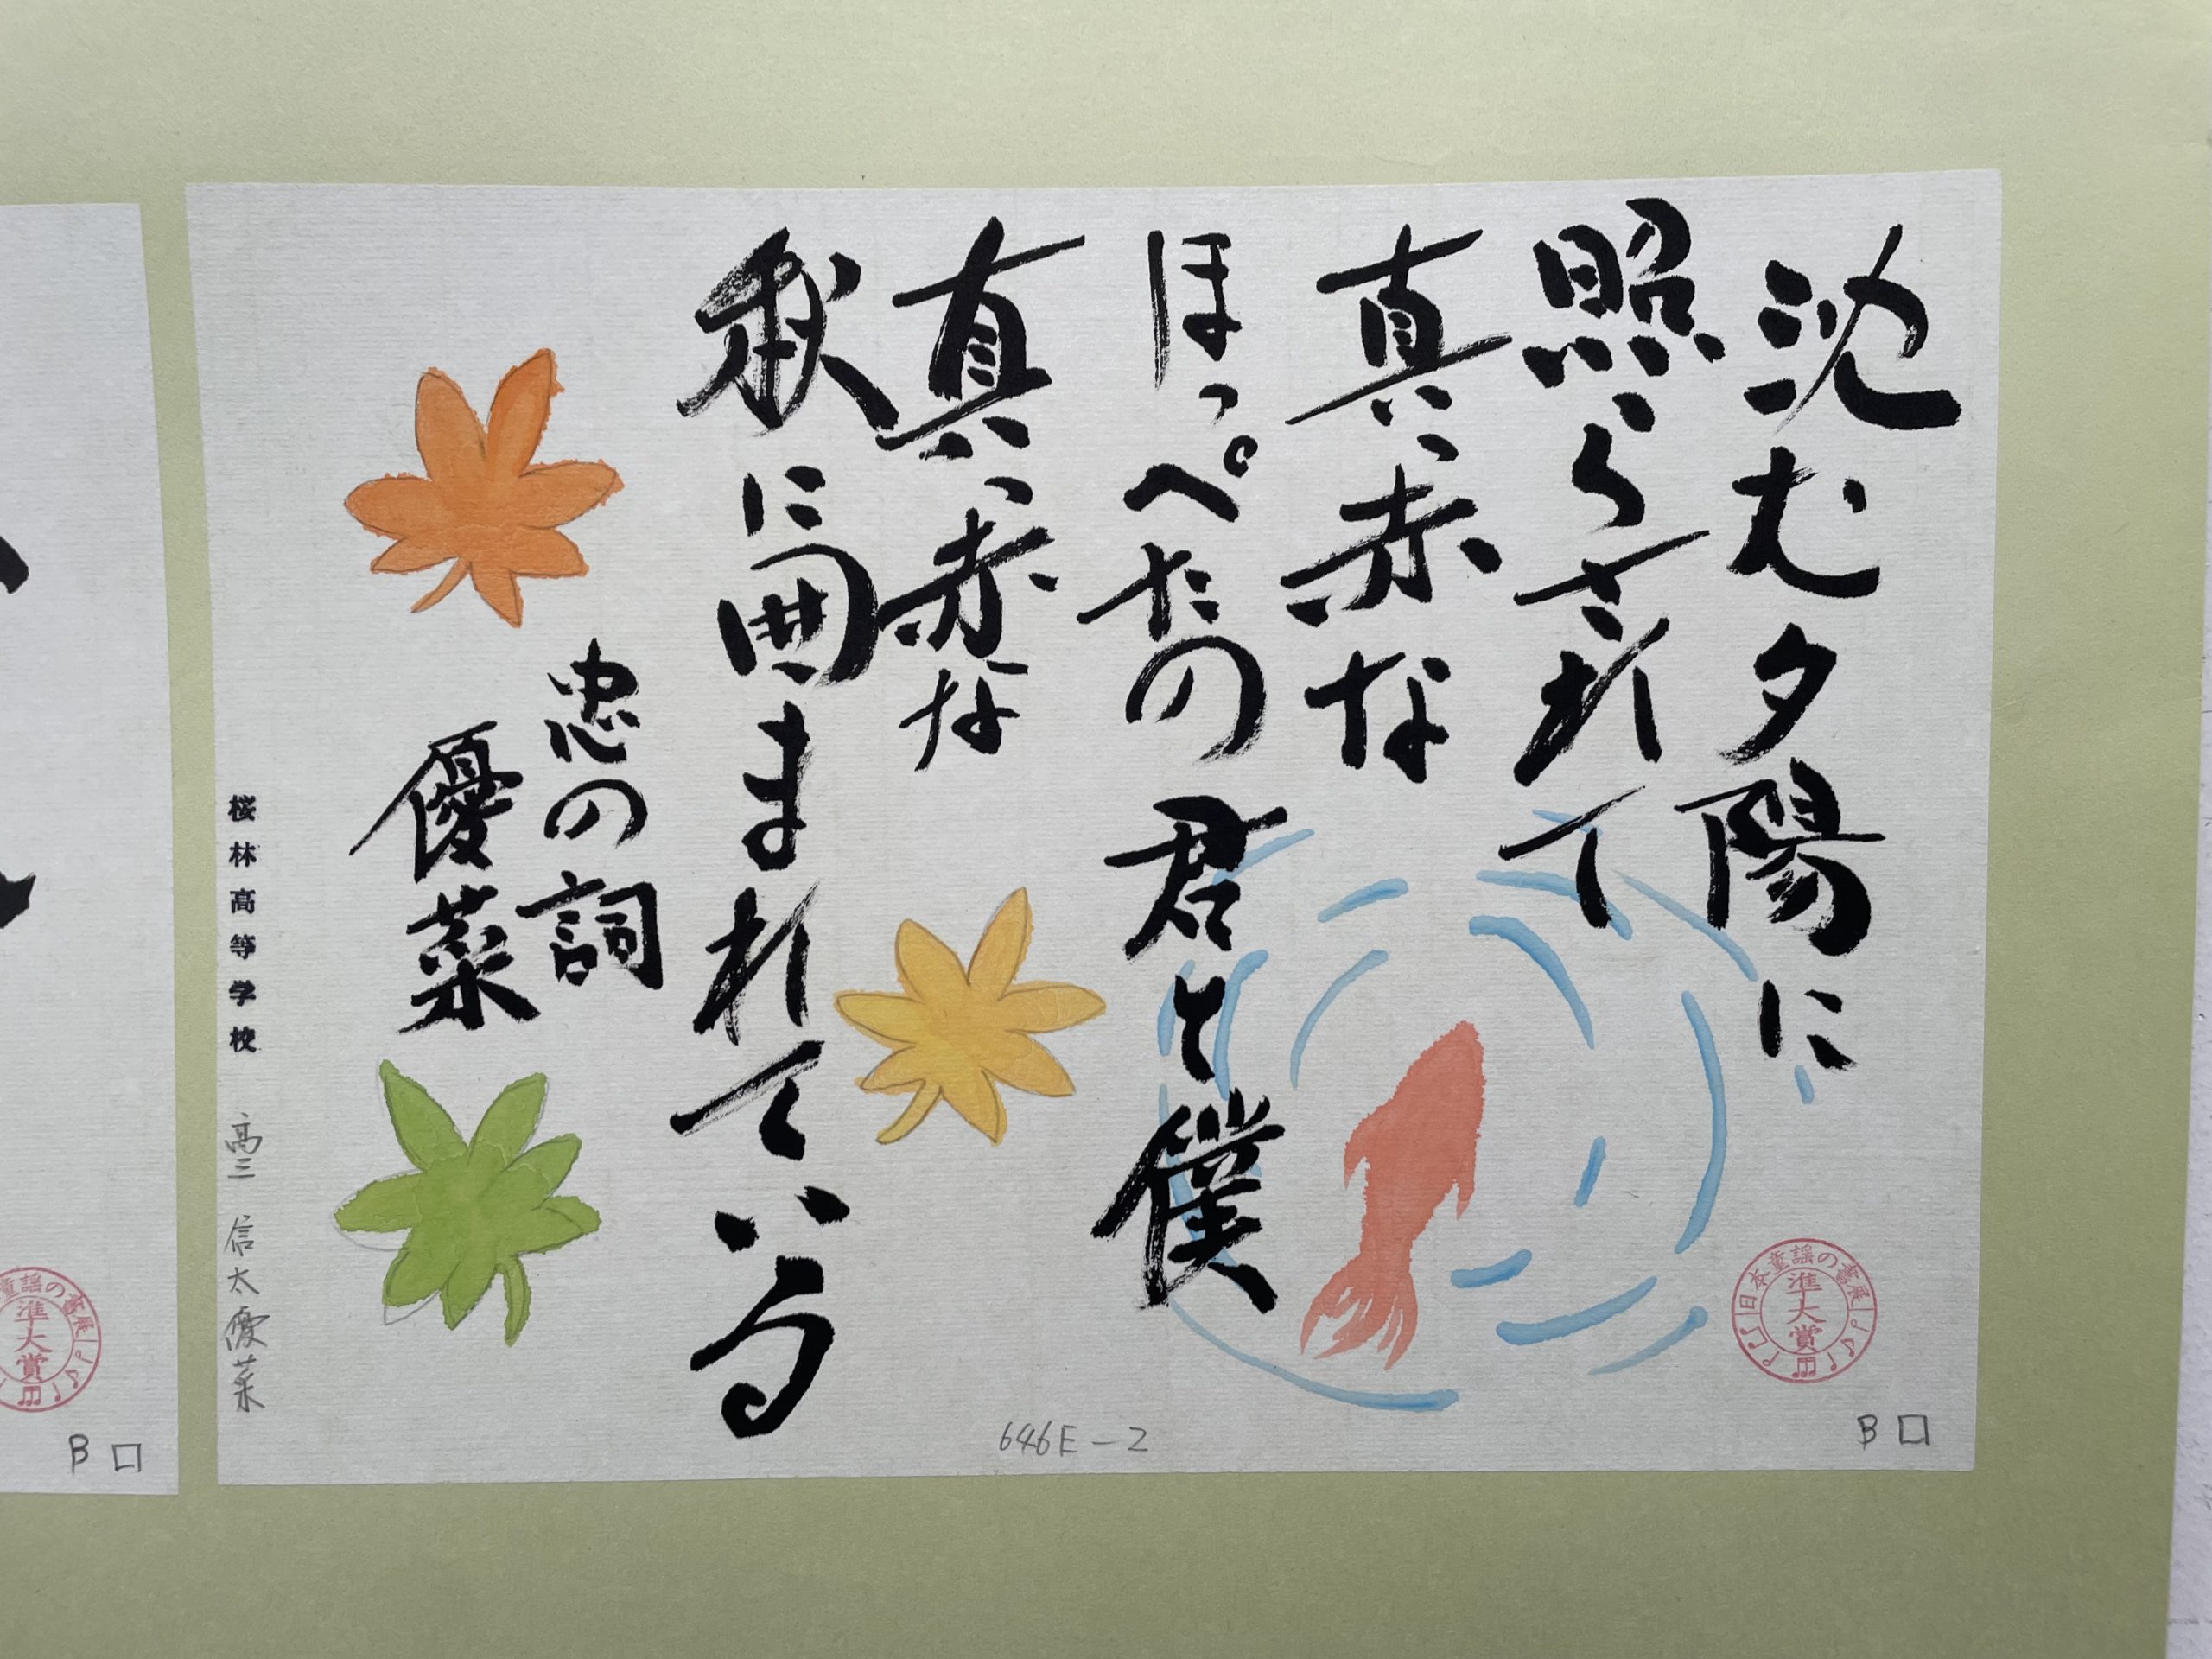 沈む夕陽に
照らされて
真っ赤な
ほっぺたの君と僕
真っ赤な
秋に囲まれている
忠の詞
優菜
桜林高等学校 高三 信太優菜
日本童謡の書展
準大賞
646E-2
B□
童謡の書展
準大賞
B□